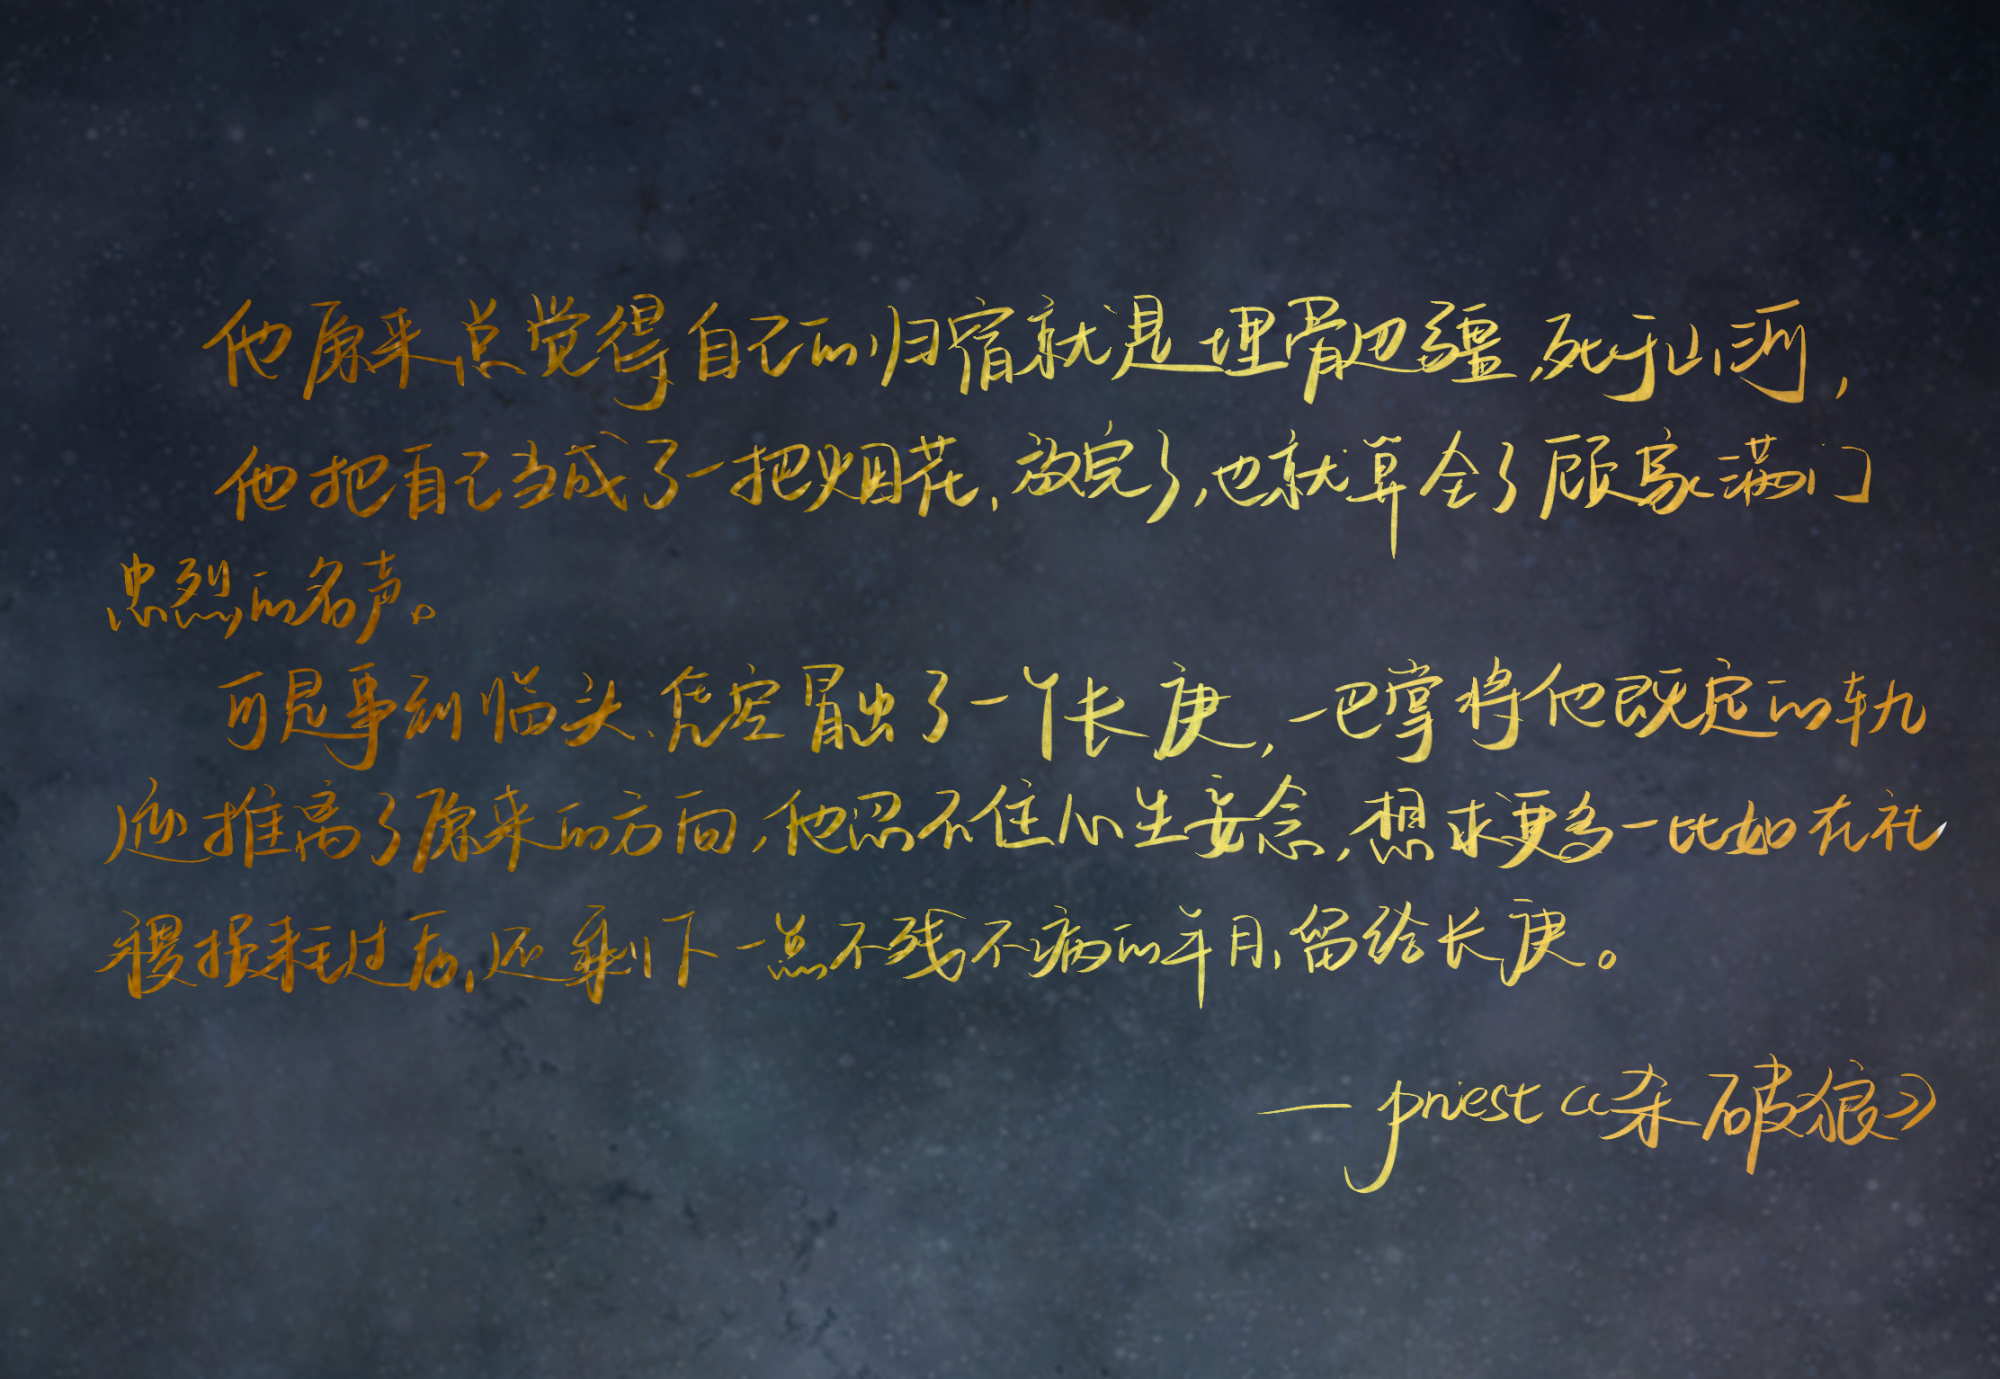 他原来总觉得自己的归宿就是埋骨边疆,死于山河,
他把自己当成了一把烟花,放完了,也就算全了顾家满门
忠烈的名声。
可是事到临头,凭空冒出了一个长庚,一巴掌将他既定的轨
迹推离了原来的方向,他忍不住心生妄念,想求更多一比如在社
稷损耗过后,还剩下一点不残不病的年月,留给长庚。
— priest《杀破狼》